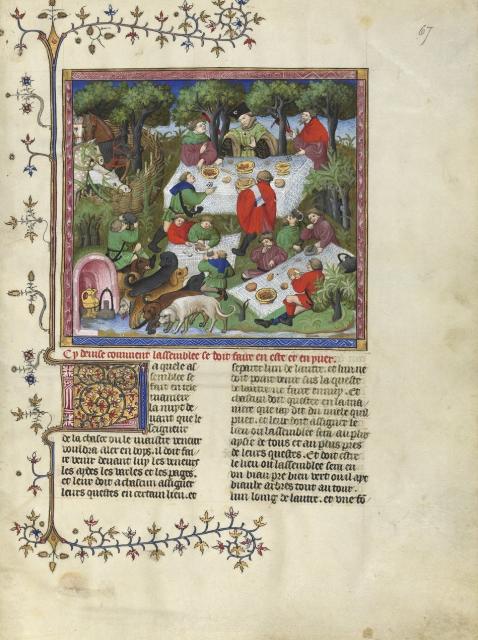 67
Cy devise comment lassemblee se doit faire en este et en yver.
La quele as
semblee se
fait en tele
maniere
la nuyt de
vant que le
seigneur
de la chasse ou le maistre veneur
voudra aler en boys. il doit fai
re venir devant luy les veneurs
les aydes les varles et les pages.
et leur doit a chascun assigner
leurs questes en certain lieu. et
separer lun de lautre. et lun ne
doit point venir sus la queste
de lautre ne faire ennuy. et
chascun doit quester en la ma
niere que iay dit du mielx quil
puet. et leur doit assigner le
lieu ou lassemblee sera au plus
ayse de tous et au plus pres
de leurs questes. Et doit estre
le lieu ou lassemblee sera en
un biau pre bien vert ou il ayt
biaulx arbres tout au tour.
lun loing de lautre. et une fo